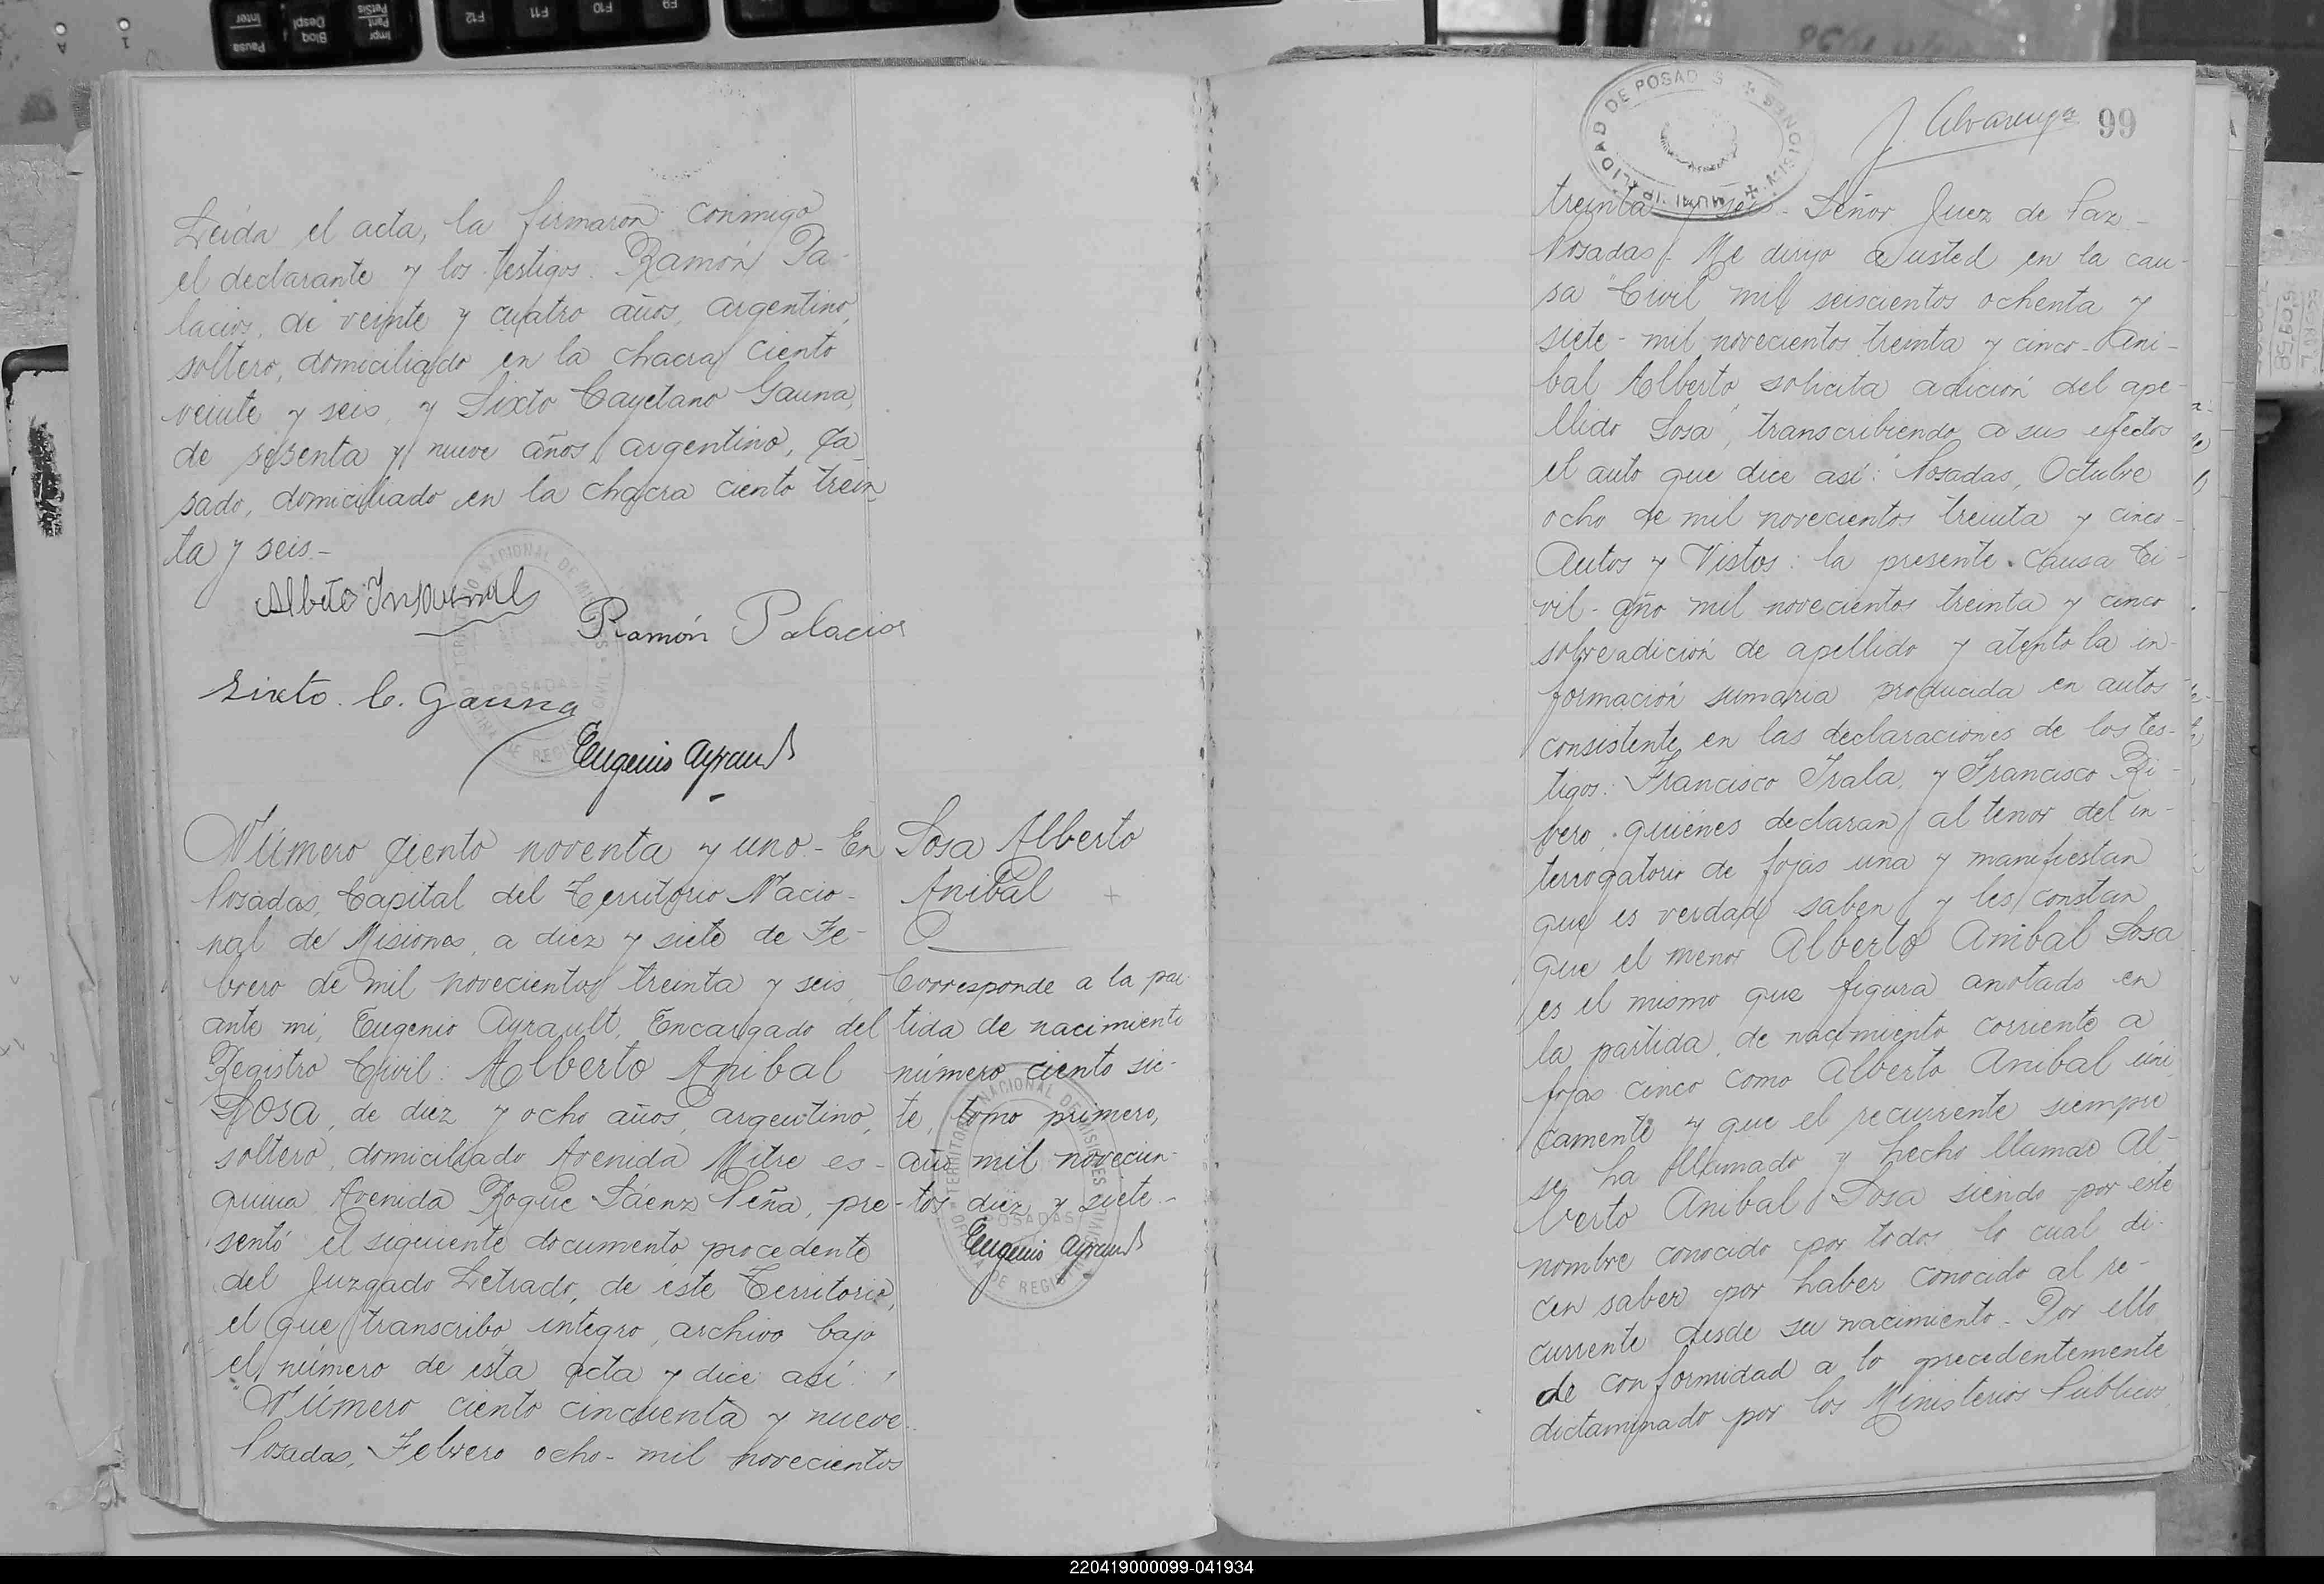 Leída el acta, la firmaron conmigo
el declarante y los testigos: Ramón Pa-
lacios, de veinte y cuatro años, argentino,
soltero, domiciliado en la chacra ciento
veinte y seis, y Sixto Cayetano Gauna,
de sesenta y nueve años, argentino, ca-
sado, domiciliado en la chacra ciento trein
ta y seis.-
Ramón Palacios
Sixto. C. Gauna
Eugenio Ayrault
Número ciento noventa y uno.- En
Posadas, Capital del Territorio Nacio-
nal de Misiones, a diez y siete de Fe-
brero de mil novecientos treinta y seis,
ante mi, Eugenio Ayrault, Encargado del
Registro Civil: Alberto Anibal
Sosa, de diez y ocho años, argentino,
soltero, domiciliado Avenida Mitre es-
quina Avenida Roque Sáenz Peña, pre-
sentó el siguiente documento procedente
del Juzgado Letrado, de éste Territorio,
el que transcribo integro, archivo bajo
el número de esta acta y dice así:
"Número ciento cincuenta y nueve.
Posadas, Febrero ocho- mil novecientos
Sosa Alberto
Anibal
Corresponde a la par-
tida de nacimiento
número ciento sie-
te, tomo primero,
año mil novecien-
tos diez y siete.-
Eugenio Ayrault
TERRITORIO NACIONAL DE MISIONES
OFICINA DE REGISTRO CIVIL
POSADAS
MUNICIPALIDAD DE POSADAS MISIONES
J. Alvarenga
99
treinta y seis.- Señor Juez de Paz-
Posadas- Me dirijo a usted en la cau-
sa "Civil mil seiscientos ochenta y
siete- mil novecientos treinta y cinco- Ani-
bal Alberto solicita adición del ape-
llido Sosa", transcribiendo a sus efectos
el auto que dice así: "Posadas, Octubre
ocho de mil novecientos treinta y cinco-
Autos y Vistos: la presente causa Ci-
vil- año mil novecientos treinta y cinco
sobre adición de apellido y atento la in-
formación sumaria producida en autos
consistente en las declaraciones de los tes-
tigos: Francisco Irala, y Francisco Ri-
vero, quienes declaran al tenor del in-
terrogatorio de fojas una y manifiestan
que es verdad saben y les constan
que el menor Alberto Anibal Sosa
es el mismo que figura anotado en
la partida de nacimiento corriente a
fojas cinco como Alberto Anibal úni
camente y que el recurrente siempre
se ha llamado y hecho llamar Al-
berto Anibal Sosa siendo por este
nombre conocido por todos lo cual di-
cen saber por haber conocido al re-
currente desde su nacimiento- Por ello
de conformidad a lo precedentemente
dictaminado por los Ministerios Publicos
220419000099-041934